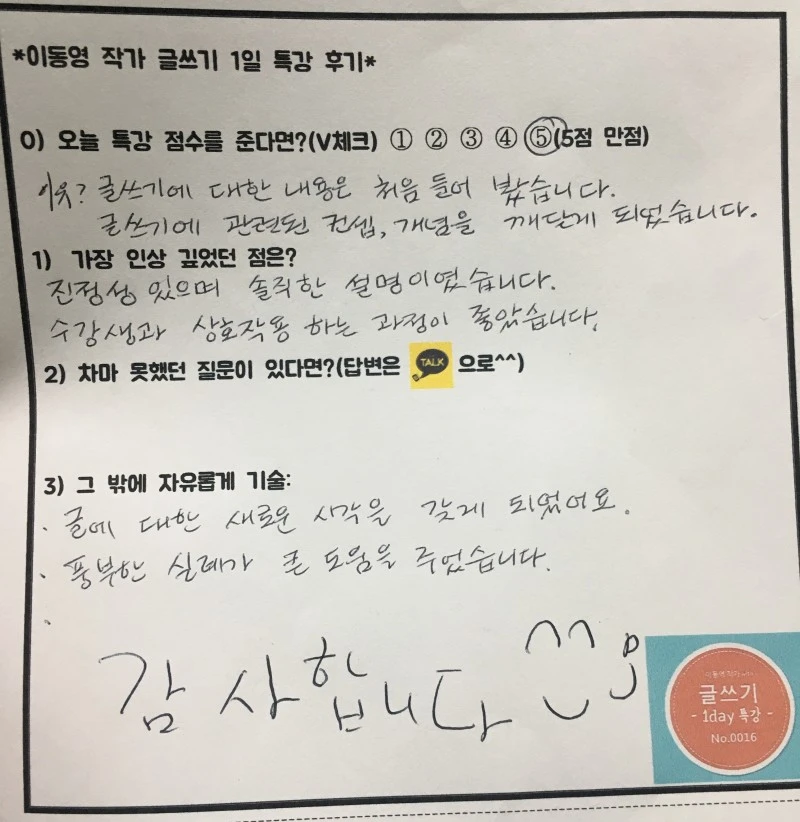 *이동영 작가 글쓰기 1일 특강 후기*
0) 오늘 특강 점수를 준다면?(V체크) ① ② ③ ④ ⑤(5점 만점)
이유? 글쓰기에 대한 내용은 처음 들어 봤습니다.
글쓰기에 관련된 컨셉, 개념을 깨닫게 되었습니다.
1) 가장 인상 깊었던 점은?
진정성 있으며 솔직한 설명이였습니다.
수강생과 상호작용 하는 과정이 좋았습니다.
2) 차마 못했던 질문이 있다면?(답변은 TALK 으로^^)
3) 그 밖에 자유롭게 기술:
· 글에 대한 새로운 시각을 갖게 되었어요.
· 풍부한 실례가 큰 도움을 주었습니다.
·
감사합니다 ^^
이동영 작가 with
글쓰기
- 1day 특강 -
No.0016